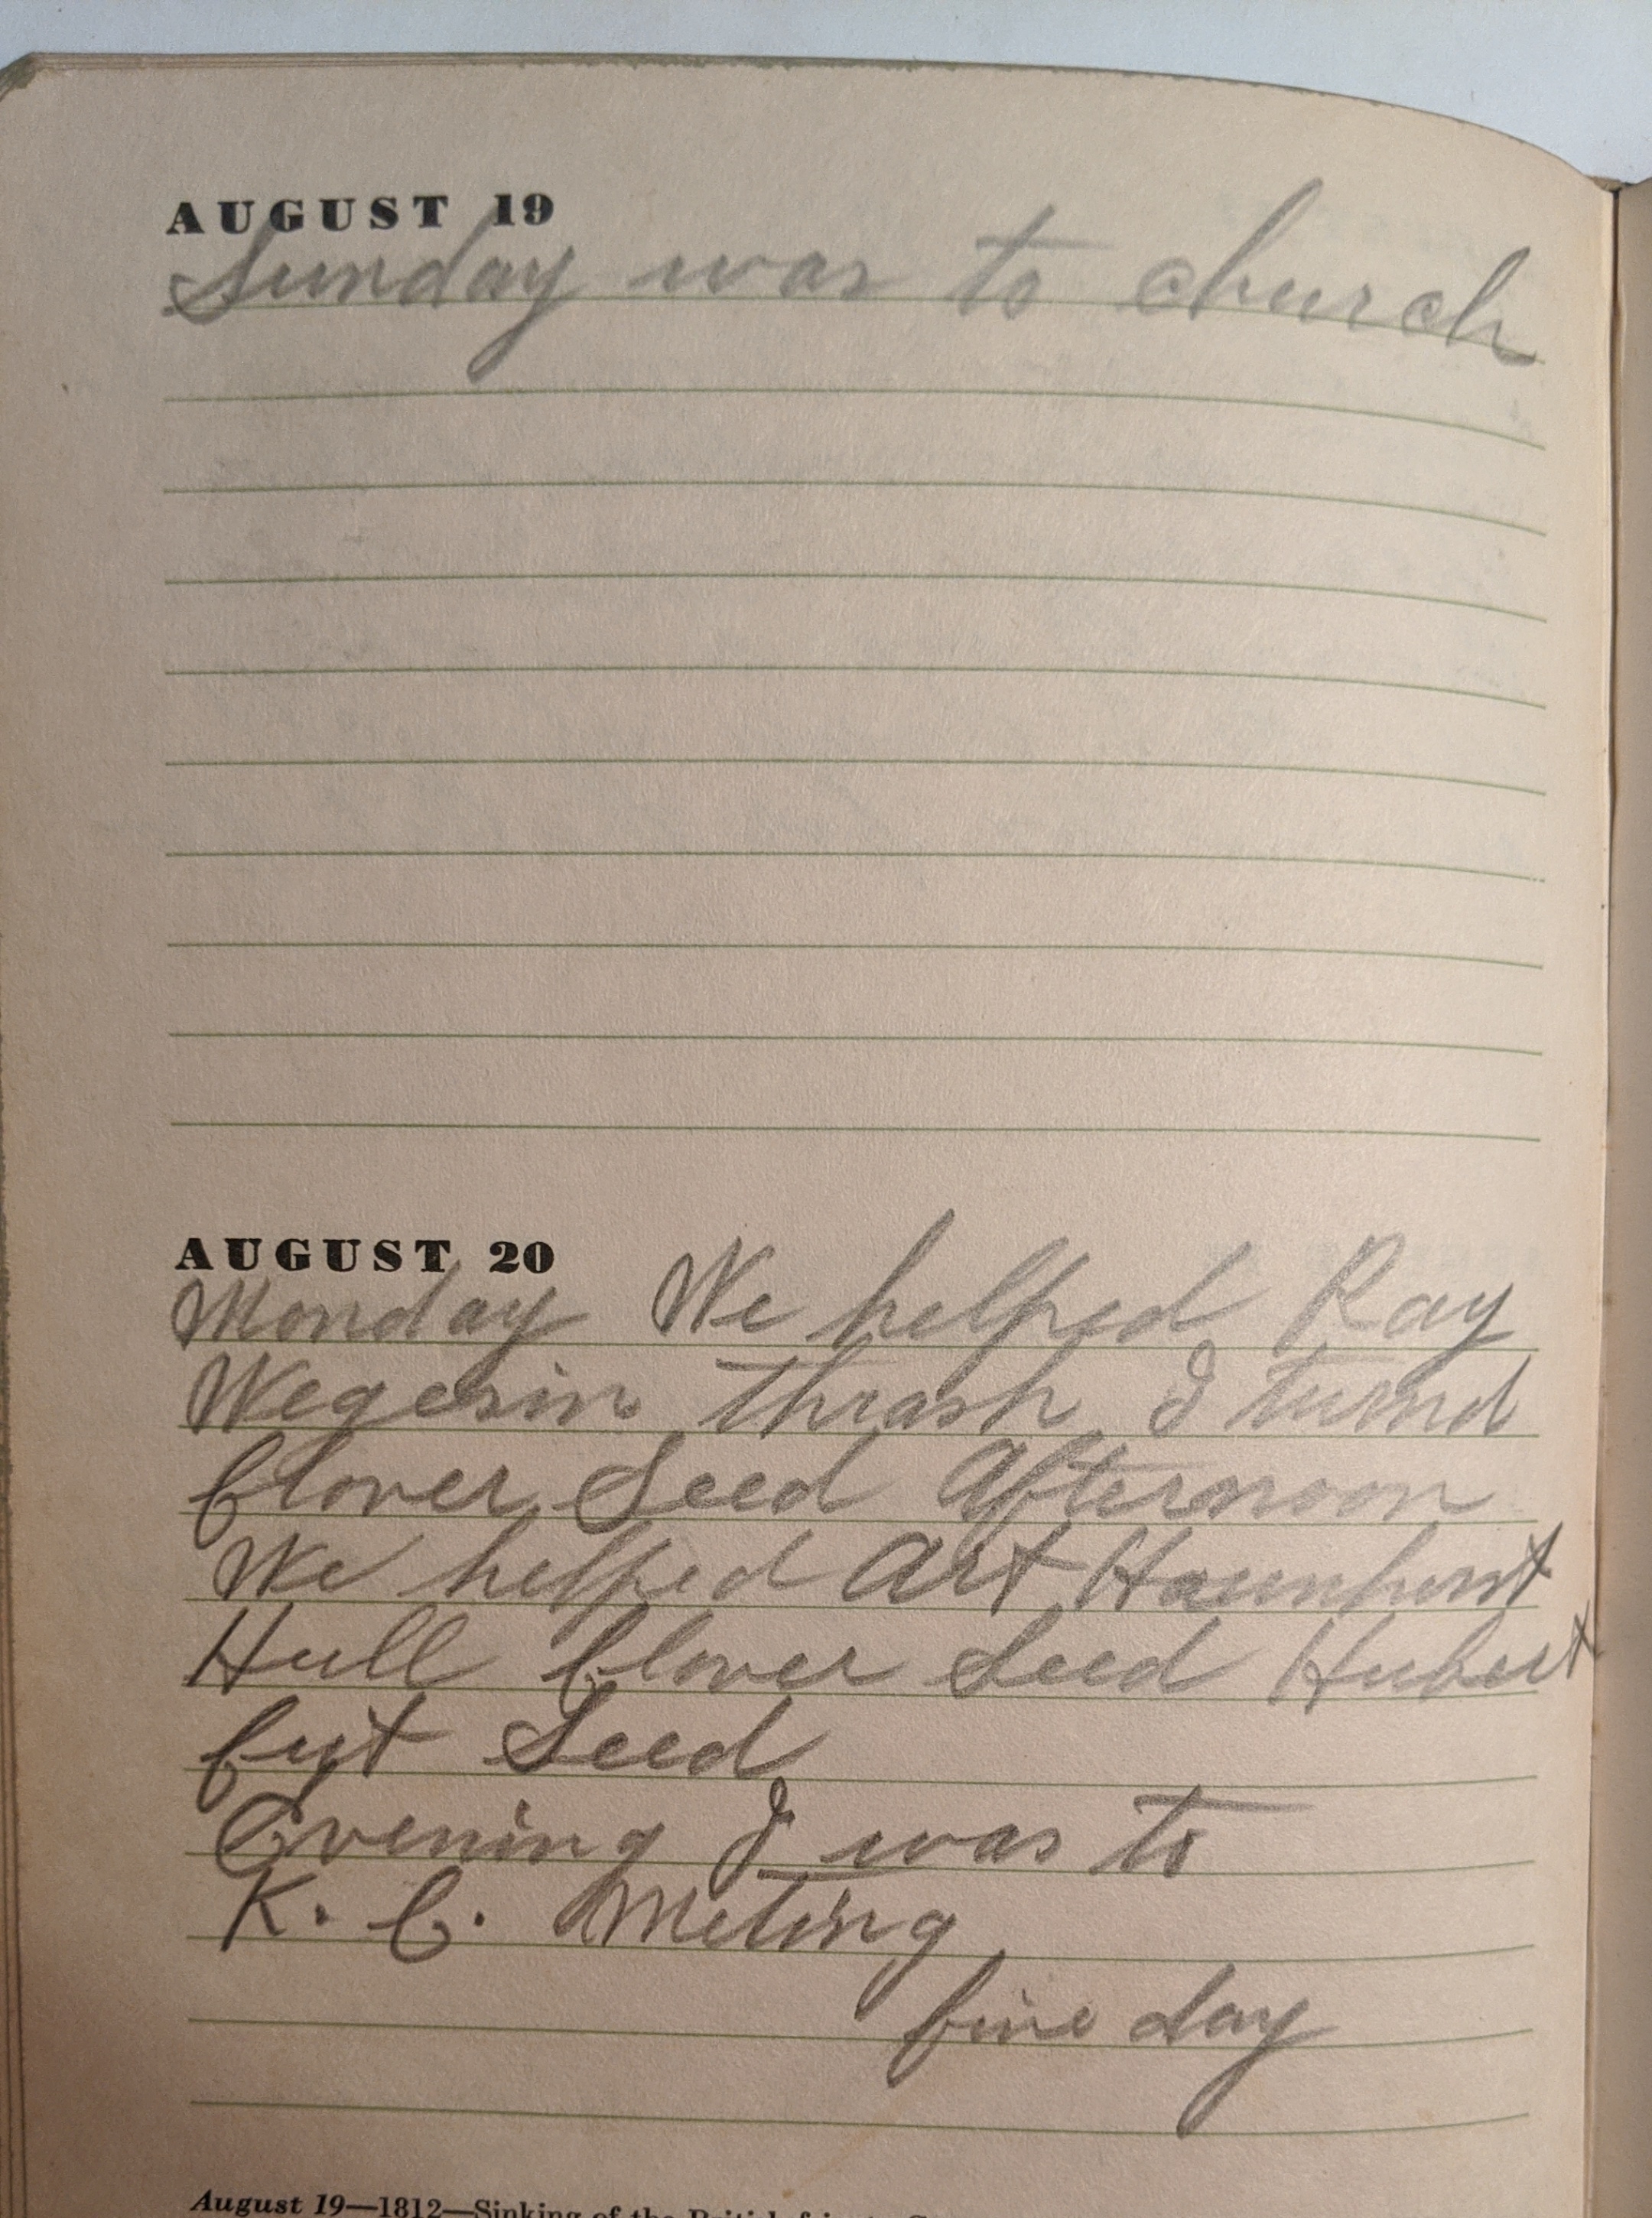 AUGUST 19
Sunday was to church
AUGUST 20
Monday We helped Ray
Wegesin thrash I turnd
Clover Seed Afternoon
We helped Art Haunhorst
Hull Clover Seed Hubert
Seed
Evening I was to
K. C. Meting
fine day
August 19—1812—Sinking of the British